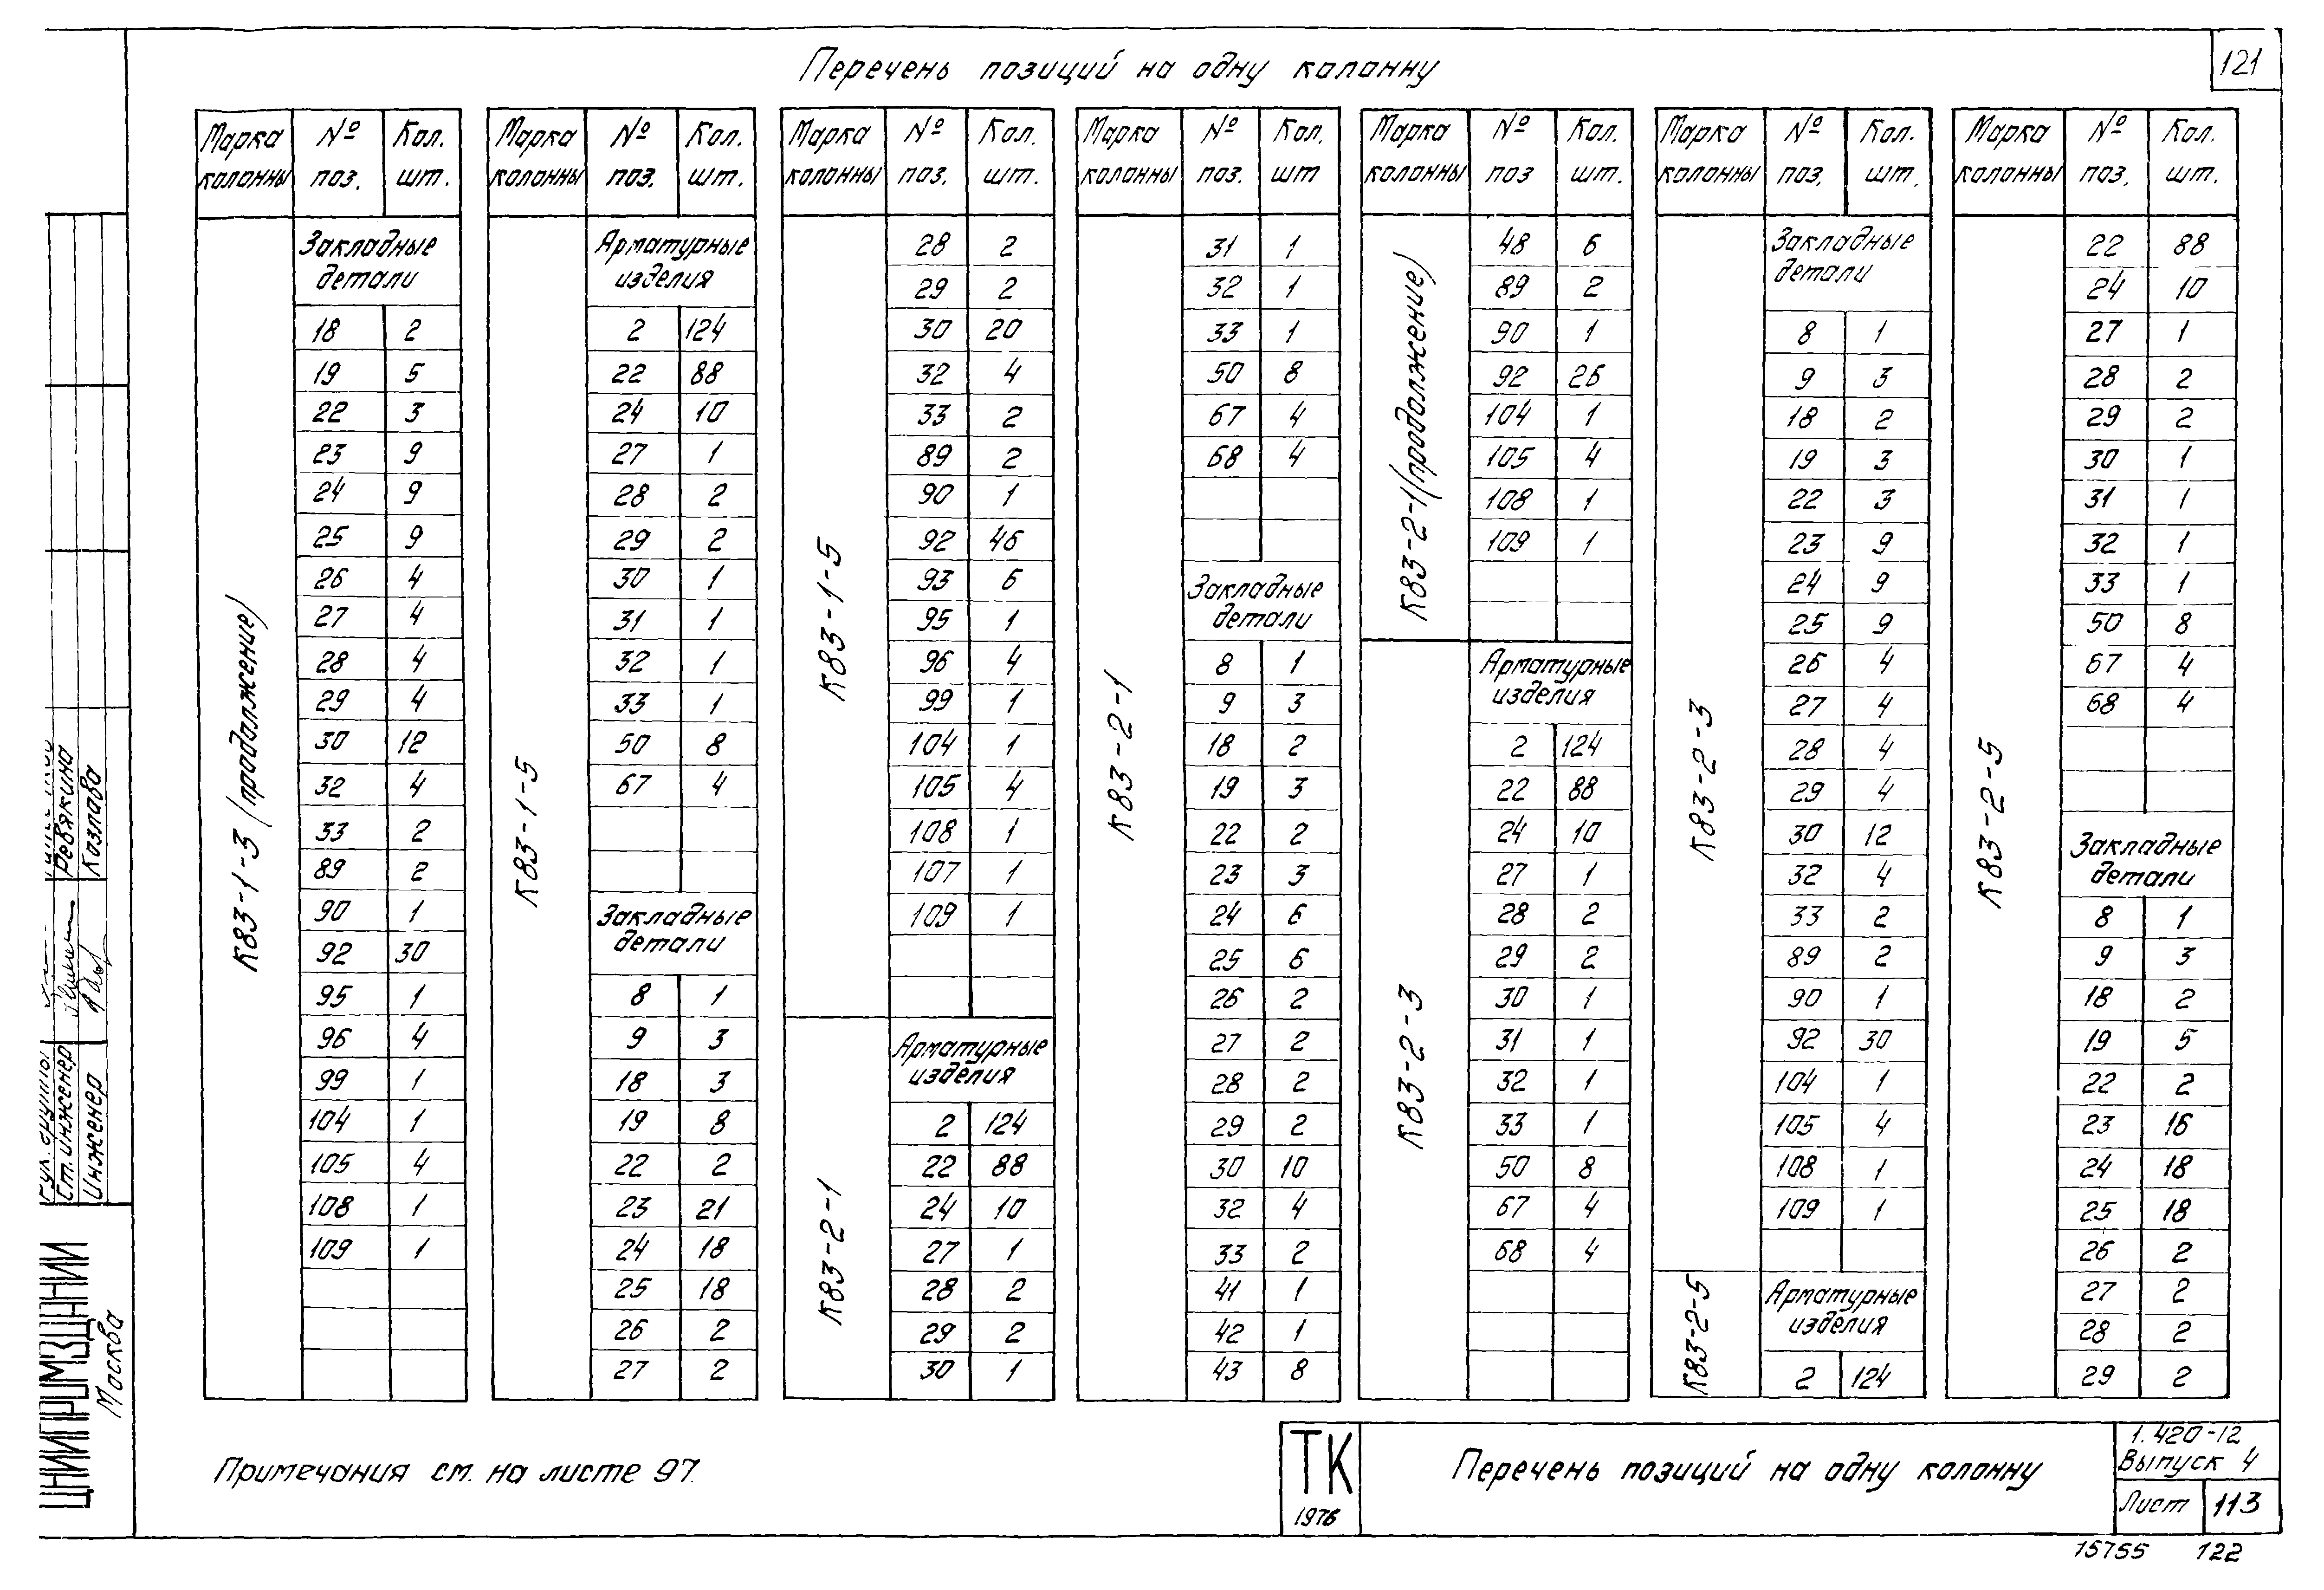 121
Перечень позиций на одну колонну
Марка колонны № поз. Кол. шт.
К83-1-3 (продолжение)
Закладные детали
18 2
19 5
22 3
23 9
24 9
25 9
26 4
27 4
28 4
29 4
30 12
32 4
33 2
89 2
90 1
92 30
95 1
96 4
99 1
104 1
105 4
108 1
109 1
Марка колонны № поз. Кол. шт.
К83-1-5
Арматурные изделия
2 124
22 88
24 10
27 1
28 2
29 2
30 1
31 1
32 1
33 1
50 8
67 4
Закладные детали
8 1
9 3
18 3
19 8
22 2
23 21
24 18
25 18
26 2
27 2
Марка колонны № поз. Кол. шт.
К83-1-5
28 2
29 2
30 20
32 4
33 2
89 2
90 1
92 46
93 6
95 1
96 4
99 1
104 1
105 4
108 1
107 1
109 1
К83-2-1
Арматурные изделия
2 124
22 88
24 10
27 1
28 2
29 2
30 1
Марка колонны № поз. Кол. шт
К83-2-1
31 1
32 1
33 1
50 8
67 4
68 4
Закладные детали
8 1
9 3
18 2
19 3
22 2
23 3
24 6
25 6
26 2
27 2
28 2
29 2
30 10
32 4
33 2
41 1
42 1
43 8
Марка колонны № поз Кол. шт.
К83-2-1 (продолжение)
48 6
89 2
90 1
92 26
104 1
105 4
108 1
109 1
К83-2-3
Арматурные изделия
2 124
22 88
24 10
27 1
28 2
29 2
30 1
31 1
32 1
33 1
50 8
67 4
68 4
Марка колонны № поз. Кол. шт.
К83-2-3
Закладные детали
8 1
9 3
18 2
19 3
22 3
23 9
24 9
25 9
26 4
27 4
28 4
29 4
30 12
32 4
33 2
89 2
90 1
92 30
104 1
105 4
108 1
109 1
К83-2-5
Арматурные изделия
2 124
Марка колонны № поз. Кол. шт.
К83-2-5
22 88
24 10
27 1
28 2
29 2
30 1
31 1
32 1
33 1
50 8
67 4
68 4
Закладные детали
8 1
9 3
18 2
19 5
22 2
23 16
24 18
25 18
26 2
27 2
28 2
29 2
Примечания см. на листе 97.
ТК
1976
Перечень позиций на одну колонну
1.420-12
Выпуск 4
Лист 113
15755 122
Ст. инженер Ревякина
Инженер Козлова
ЦНИИПРОМЗДАНИЙ
Москва